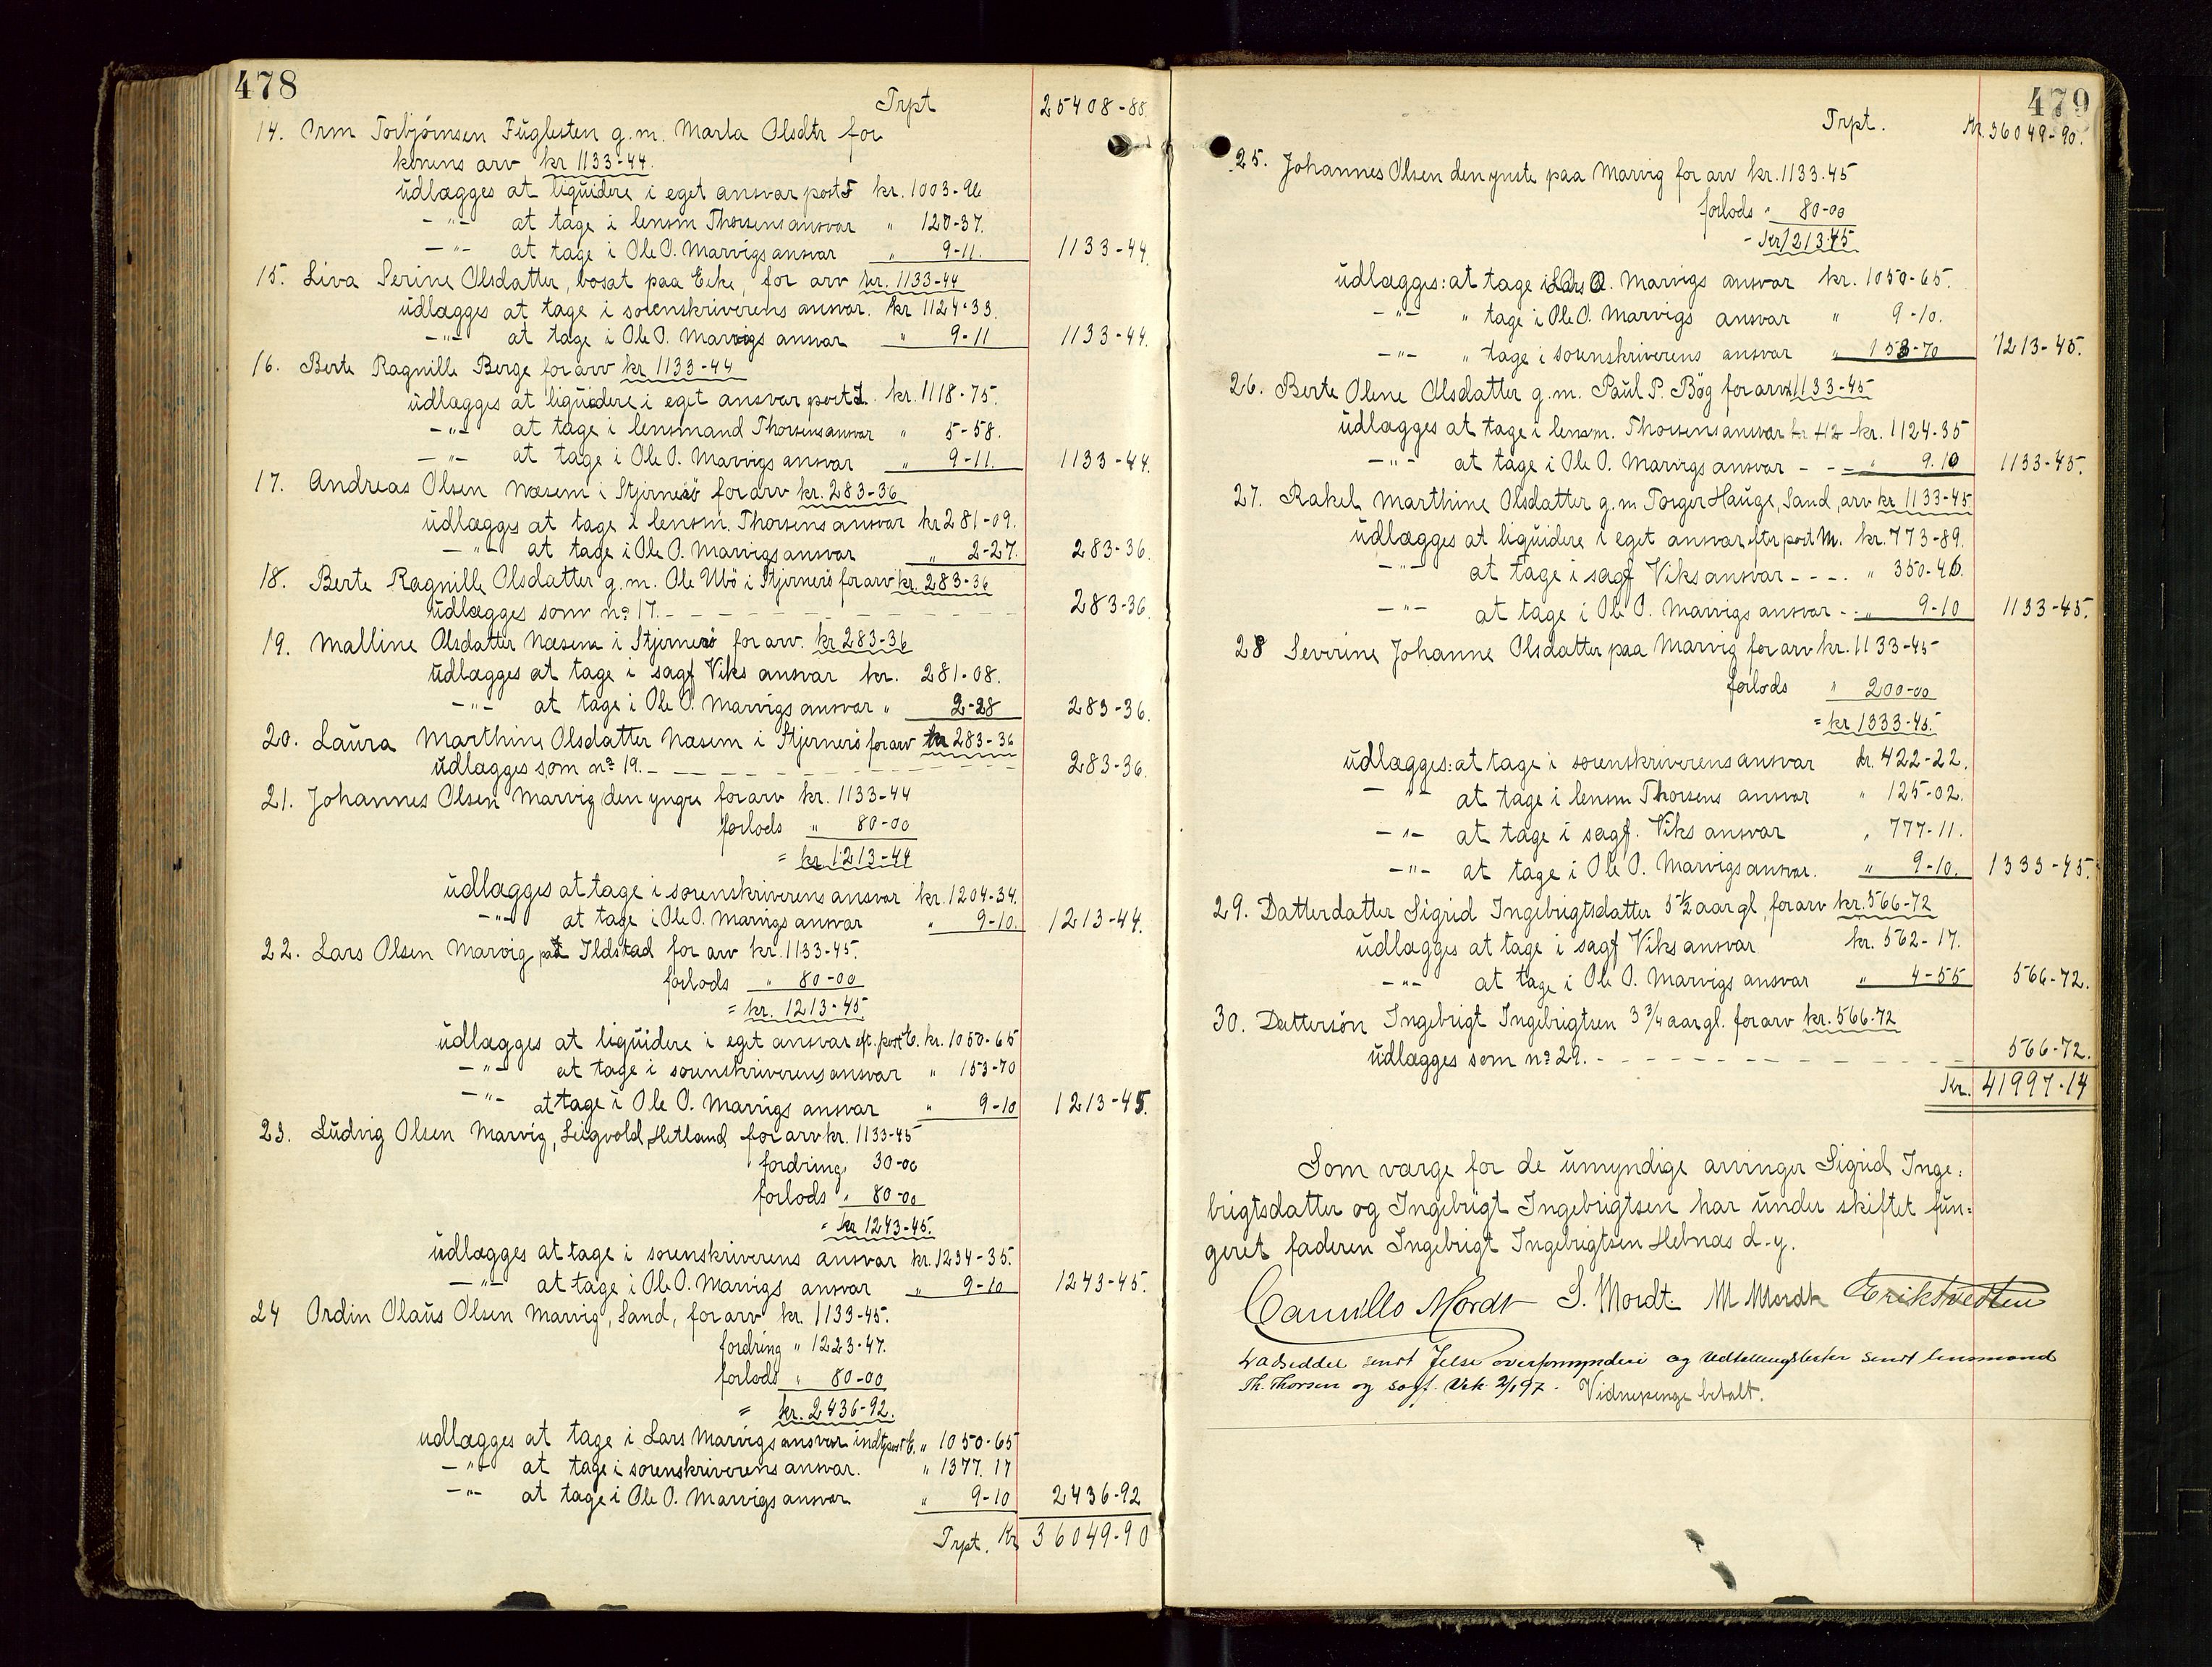 478
Trpt 25408-88.
14. Arm Torbjörnsen Fuglesten g.m. Marta Olsdtr for
konens arv kr 1133-44.
udlægges at liquidere i eget ansvar post F kr. 1003-96
-"- at tage i lensm Thorsens ansvar " 120-37.
-"- at tage i Ole O. Marvigs ansvar " 9-11. 1133-44.
15. Liva Serine Olsdatter, bosat paa Eike, for arv kr. 1133-44
udlægges at tage i sorenskriverens ansvar. kr 1124-33.
-"- at tage i Ole O. Marvigs ansvar " 9-11 1133-44.
16. Berte Ragnille Berge for arv kr 1133-44
udlægges at liquidere i eget ansvar post I. kr. 1118-75.
-"- at tage i lensmand Thorsens ansvar " 5-58.
-"- at tage i Ole O. Marvigs ansvar " 9-11. 1133-44.
17. Andreas Olsen Næsem i Stjernerö for arv kr. 283-36
udlægges at tage i lensm. Thorsens ansvar kr 281-09.
-"- at tage i Ole O. Marvigs ansvar " 2-27. 283-36.
18. Berte Ragnille Olsdatter g.m. Ole Ubö i Stjernerö for arv kr. 283-36
udlægges som no 17. - - - - - - 283-36.
19. Malline Olsdatter Næsem i Stjernerö for arv. kr 283-36
udlægges at tage i sagf Viks ansvar kr. 281-08.
-"- at tage i Ole O. Marvigs ansvar " 2-28 283-36.
20. Laura Marthine Olsdatter Næsem i Stjernerö for arv kr 283-36
udlægges som no 19. - - - - - - 283-36.
21. Johannes Olsen Marvig den yngre for arv kr. 1133-44
forlods " 80-00
= kr 1213-44
udlægges at tage i sorenskriverens ansvar kr. 1204-34.
-"- at tage i Ole O. Marvigs ansvar " 9-10. 1213-44.
22. Lars Olsen Marvig paa Ildstad for arv kr. 1133-45.
forlods " 80-00
= kr. 1213-45.
udlægges at liquidere i eget ansvar eft. post C. kr. 1050-65
-"- at tage i sorenskriverens ansvar " 153-70
-"- at tage i Ole O. Marvigs ansvar " 9-10 1213-45.
23. Ludvig Olsen Marvig, Leigvold, Hetland for arv kr. 1133-45
fordring " 30-00
forlods " 80-00
= kr 1243-45.
udlægges at tage i sorenskriverens ansvar kr. 1234-35.
-"- at tage i Ole O. Marvigs ansvar " 9-10 1243-45.
24 Ordin Olaus Olsen Marvig, Sand, for arv kr. 1133-45.
fordring " 1223-47.
forlods " 80-00
= kr. 2436-92.
udlægges at tage i Lars Marvigs ansvar indt post C. " 1050-65
-"- at tage i sorenskriverens ansvar. " 1377.17
-"- at tage i Ole O. Marvigs ansvar " 9-10 2436-92
Trpt. Kr 36049-90
479
Trpt. Kr. 36049-90.
25. Johannes Olsen den ynste paa Marvig for arv kr. 1133-45
forlods " 80-00
- Kr 1213-45
udlægges: at tage i Lars O. Marvigs ansvar kr. 1050-65.
-"- " tage i Ole O. Marvigs ansvar " 9-10.
-"- " tage i sorenskriverens ansvar " 153-70 1213-45.
26. Berte Olene Olsdatter g.m. Paul P. Bög for arv kr 1133-45
udlægges at tage i lensm. Thorsens ansvar kr 112 kr. 1124-35
-"- at tage i Ole O. Marvigs ansvar - - - " 9.10 1133-45.
27. Rakel Marthine Olsdatter g.m Torger Hauge, Sand, arv kr 1133-45
udlægges at liquidere i eget ansvar eftr post M. kr. 773-89.
-"- at tage i sagf Viks ansvar - - - " 350-46.
-"- at tage i Ole O. Marvigs ansvar - - " 9-10 1133-45.
28 Severine Johanne Olsdatter paa Marvig for arv kr. 1133-45
forlods " 200-00
= kr 1333-45.
udlægges: at tage i sorenskriverens ansvar kr. 422-22.
-"- at tage i lensm Thorsens ansvar " 125-02.
-"- at tage i sagf. Viks ansvar " 777-11.
-"- at tage i Ole O. Marvigs ansvar. " 9-10. 1333-45.
29. Datterdatter Sigrid Ingebrigtsdatter 5 1/2 aar gl, for arv kr. 566-72
udlægges at tage i sagf Viks ansvar kr. 562-17.
-"- at tage i Ole O. Marvigs ansvar " 4-55 566-72.
30. Dattersön Ingebrigt Ingebrigtsen 3 3/4 aar gl. for arv kr. 566-72
udlægges som no 29. - - - - - - 566-72.
Kr. 41997.14
Som værge for de umyndige arvinger Sigrid Inge=
brigtsdatter og Ingebrigt Ingebrigtsen har under skiftet fun=
geret faderen Ingebrigt Ingebrigtsen Hebnæs d.y.
Camillo Mordt S. Mordt M Mordt Erik Tvedten
sendt Jelse overformynderi og Udtællingslister sendt lensmand
Th. Thorsen og sagf. Vik 2/1 97. Vidnepenge betalt.